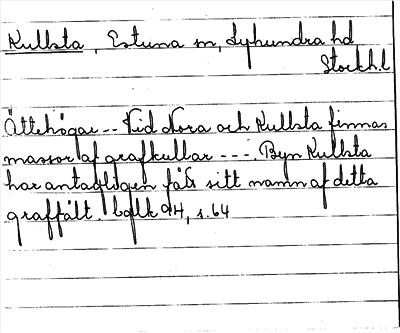 Kullsta, Estuna sn, Lyhundra hd
Stockh.l
Ättehögar -- Vid Nora och Kullsta finnas
massor af grafkullar ---. Byn Kullsta
har antagligen fått sitt namn af detta
graffält. 94, s. 64